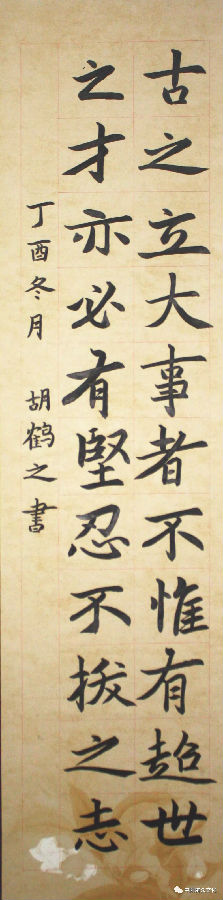 古之立大事者不惟有超世
之才亦必有堅忍不拔之志
丁酉冬月 胡鹤之書